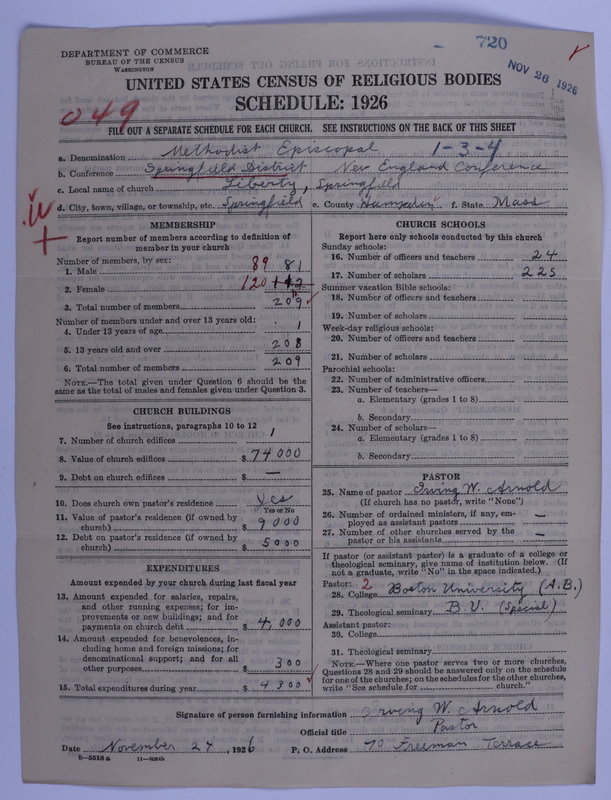 720
NOV 26 1926
DEPARTMENT OF COMMERCE
BUREAU OF THE CENSUS
WASHINGTON
UNITED STATES CENSUS OF RELIGIOUS BODIES
SCHEDULE: 1926
049
FILL OUT A SEPARATE SCHEDULE FOR EACH CHURCH. SEE INSTRUCTIONS ON THE BACK OF THIS SHEET
1-3-4
a. Denomination Methodist Episcopal
b. Conference Springfield District New England Conference
c. Local name of church Liberty, Springfield
d. City, town, village, or township, etc. Springfield e. County Hampden f. State Mass
MEMBERSHIP
Report number of members according to definition of
member in your church
Number of members, by sex:
1. Male 89 81
2. Female 120
3. Total number of members 209
Number of members under and over 13 years old:
4. Under 13 years of age 1
5. 13 years old and over 208
6. Total number of members 209
NOTE.—The total given under Question 6 should be the
same as the total of males and females given under Question 3.
CHURCH BUILDINGS
See instructions, paragraphs 10 to 12
7. Number of church edifices 1
8. Value of church edifices $ 74000
9. Debt on church edifices $ —
10. Does church own pastor's residence Yes
Yes or No
11. Value of pastor's residence (if owned by
church) $ 9000
12. Debt on pastor's residence (if owned by
church) $ 5000
EXPENDITURES
Amount expended by your church during last fiscal year
13. Amount expended for salaries, repairs,
and other running expenses; for im-
provements or new buildings; and for
payments on church debt $ 4,000
14. Amount expended for benevolences, in-
cluding home and foreign missions; for
denominational support; and for all
other purposes $ 300
15. Total expenditures during year $ 4300
CHURCH SCHOOLS
Report here only schools conducted by this church
Sunday schools:
16. Number of officers and teachers 24
17. Number of scholars 225
Summer vacation Bible schools:
18. Number of officers and teachers
19. Number of scholars
Week-day religious schools:
20. Number of officers and teachers
21. Number of scholars
Parochial schools:
22. Number of administrative officers
23. Number of teachers—
a. Elementary (grades 1 to 8)
b. Secondary
24. Number of scholars—
a. Elementary (grades 1 to 8)
b. Secondary
PASTOR
25. Name of pastor Irving W. Arnold
(If church has no pastor, write "None")
26. Number of ordained ministers, if any, em-
ployed as assistant pastors —
27. Number of other churches served by the
pastor or his assistants —
If pastor (or assistant pastor) is a graduate of a college or
theological seminary, give name of institution below. (If
not a graduate, write "No" in the space indicated.)
Pastor: 2
28. College Boston University (A.B.)
29. Theological seminary B.U. (Special)
Assistant pastor:
30. College
31. Theological seminary
NOTE.—Where one pastor serves two or more churches,
Questions 28 and 29 should be answered only on the schedule
for one of the churches; on the schedules for the other churches,
write "See schedule for church."
Signature of person furnishing information Irving W. Arnold
Official title Pastor
Date November 24, 1926 P. O. Address 70 Freeman Terrace
8—5518a 11—9054b